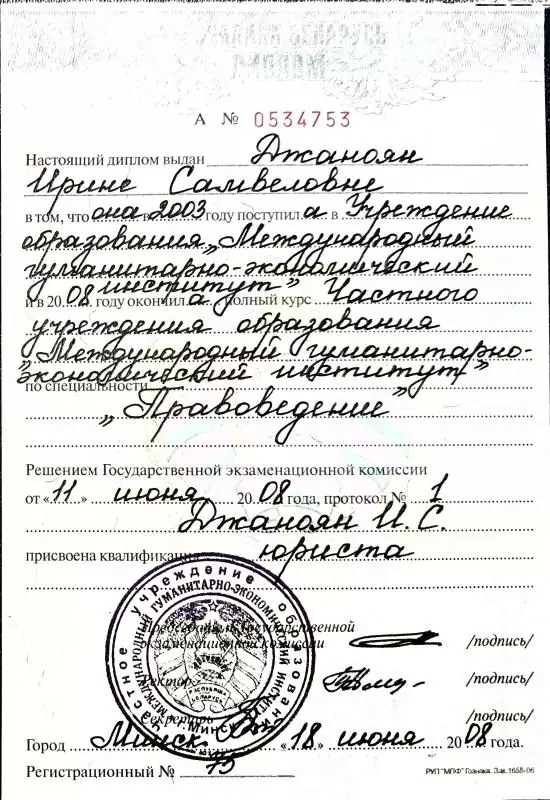 А № 0534753
Настоящий диплом выдан Джаноян
Ирине Самвеловне
в том, что она в 2003 году поступил а в Учреждение
образования „Международный
гуманитарно-экономический
институт"
и в 2008 году окончил а полный курс Частного
учреждения образования
„Международный гуманитарно-
экономический институт"
по специальности
„Правоведение"
Решением Государственной экзаменационной комиссии
от «11» июня 2008 года, протокол № 1
Джаноян И. С.
присвоена квалификация юриста
Председатель Государственной
экзаменационной комиссии /подпись/
Ректор /подпись/
Секретарь /подпись/
Город Минск «18» июня 2008 года.
Регистрационный № 75
РУП "МПФ" Гознака. Зак. 1658-06
Частное учреждение образования
МЕЖДУНАРОДНЫЙ ГУМАНИТАРНО-ЭКОНОМИЧЕСКИЙ ИНСТИТУТ
РЭСПУБЛІКА
БЕЛАРУСЬ
Минск